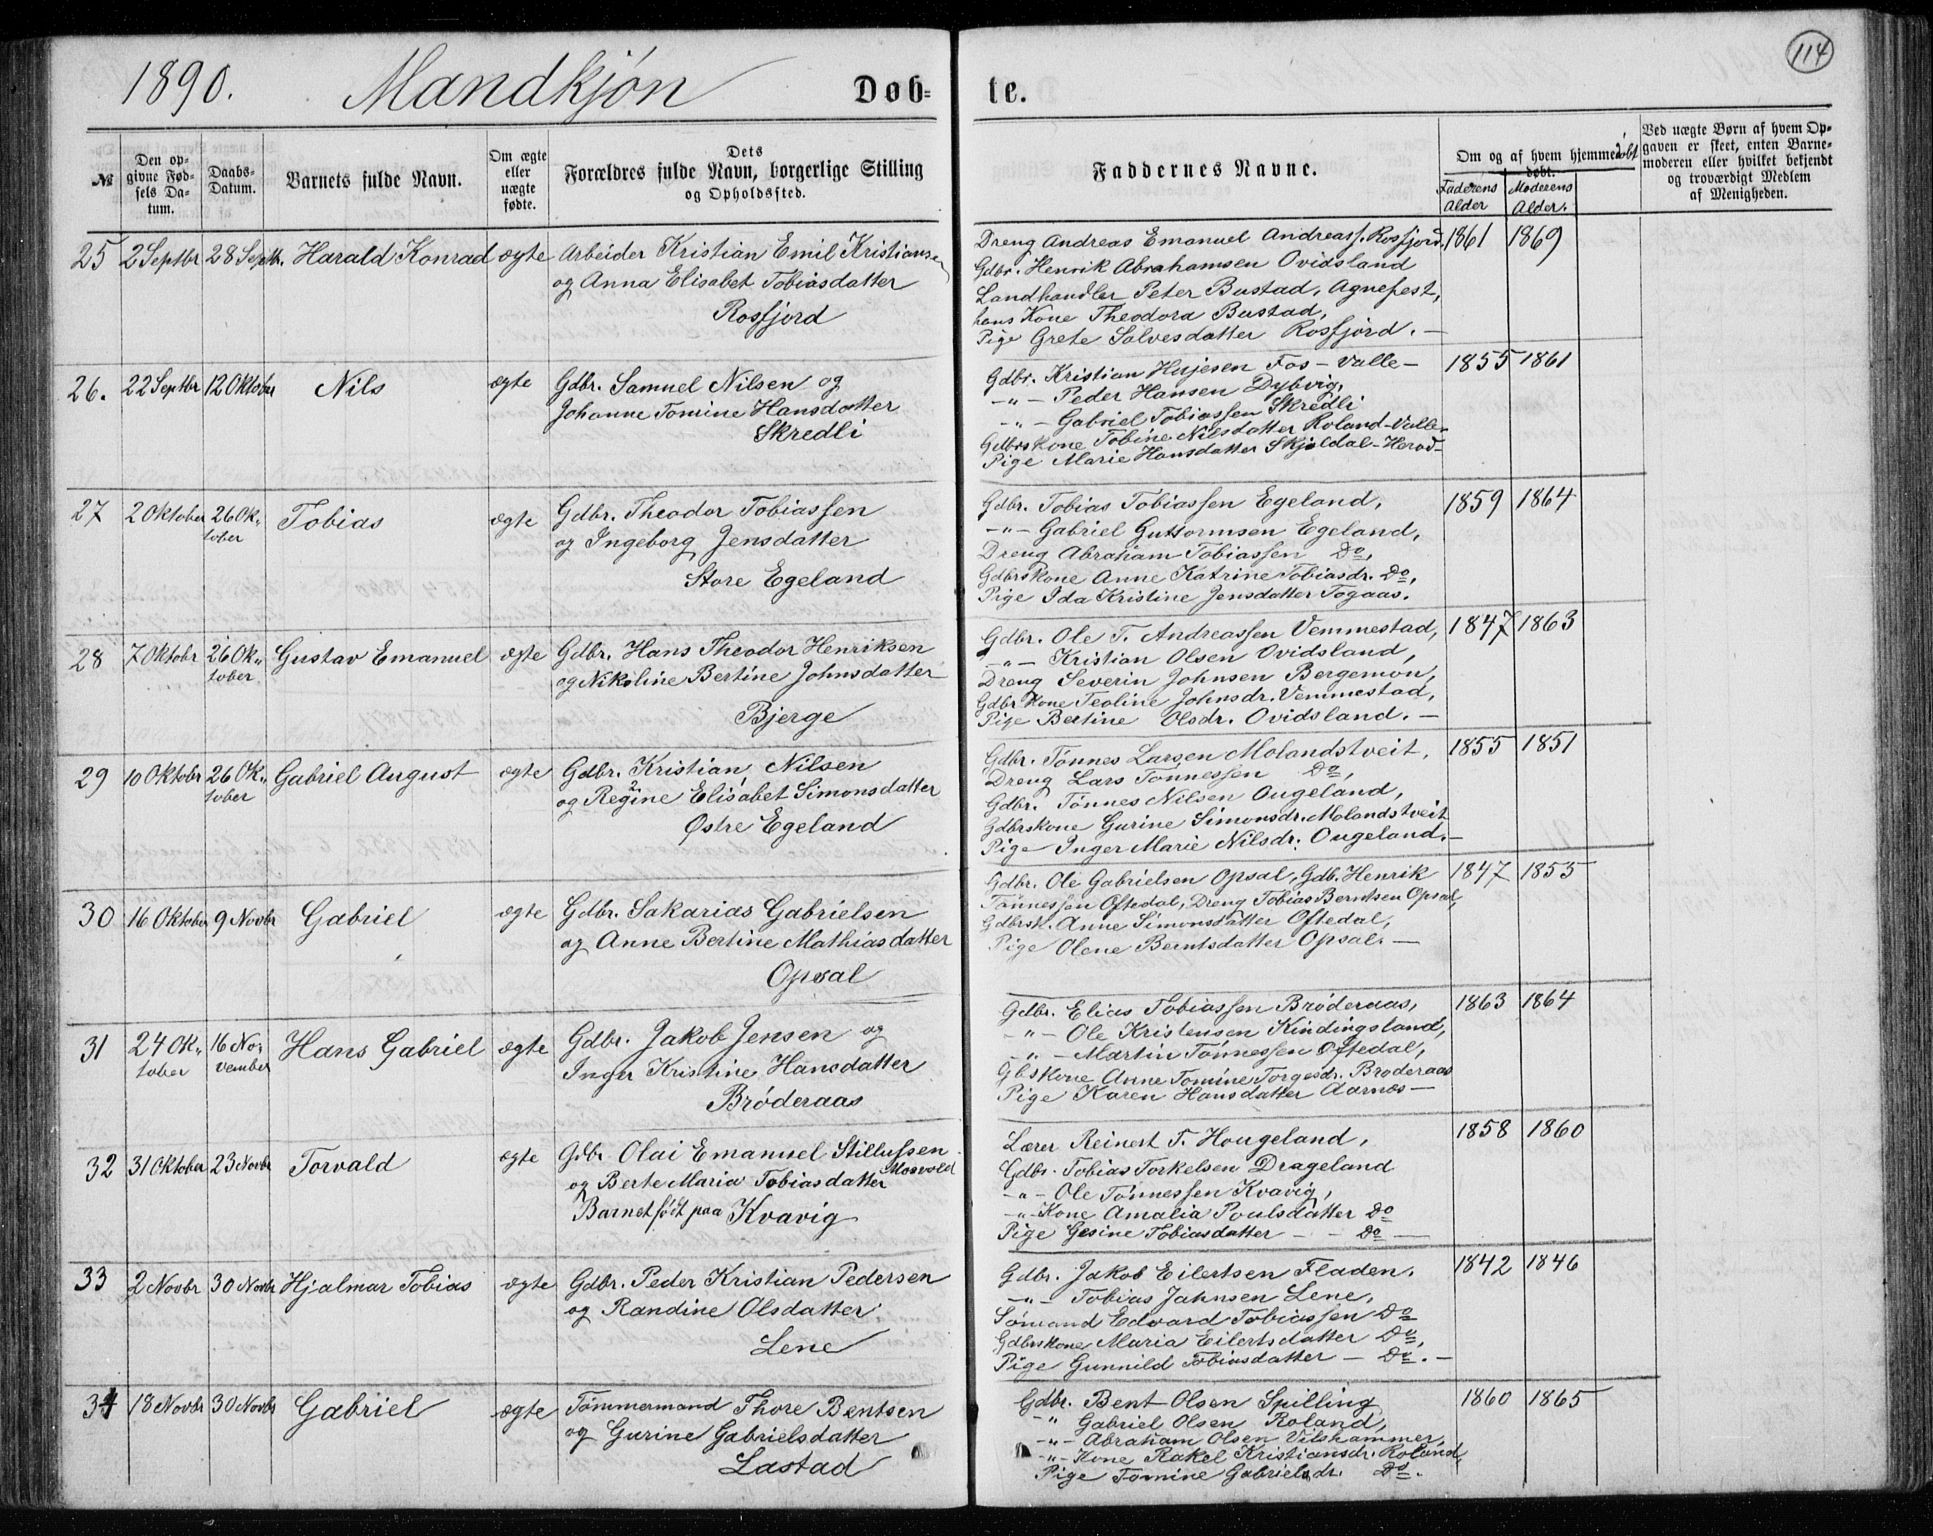 114
1890. Mandkjøn Døb= te.
№
Den op-
givne Fød-
sels Da-
tum.
Daabs-
Datum.
Barnets fulde Navn.
Om ægte
eller
uægte
fødte.
Dets
Forældres fulde Navn, borgerlige Stilling
og Opholdssted.
Faddernes Navne.
Om og af hvem hjemmedøbt
døbt.
Faderens
Alder
Moderens
Alder.
Ved uægte Børn af hvem Op-
gaven er skeet, enten Barne-
moderen eller hvilket bekjendt
og troværdigt Medlem
af Menigheden.
25 2 Septbr 28 Septb. Harald Konrad ægte Arbeider Kristian Emil Kristiansen
og Anna Elisabet Tobiasdatter
Rosfjord
Dreng Andreas Emanuel Andreass. Rosfjord. 1861 1869
Gdbr. Henrik Abrahamsen Ovidsland
Landhandler Peter Bustad, Agnefest,
hans Kone Theodora Bustad,
Pige Grete Salvesdatter Rosfjord. —
26. 22 Septbr 12 Oktober Nils ægte Gdbr. Samuel Nilsen og
Johanne Tomine Hansdatter
Skredli
Gdbr. Kristian Fos - Valle — 1855 1861
—"— Peder Hansen Dybvig,
—"— Gabriel Tobiassen Skredli
Gdbrskone Tobine Nilsdatter Roland-Valle-
Pige Marie Hansdatter Skjoldal-Herad-
27 2 Oktober 26 Ok-
tober Tobias ægte Gdbr. Theodor Tobiassen
og Ingeborg Jensdatter
Store Egeland
Gdbr. Tobias Tobiassen Egeland, 1859 1864
—"— Gabriel Guttormsen Egeland,
Dreng Abraham Tobiassen Do,
Gdbrskone Anne Katrine Tobiasdr. Do,
Pige Ida Kristine Jensdatter Togaas.
28 7 Oktobr 26 Ok-
tober Gustav Emanuel ægte Gdbr. Hans Theodor Henriksen
og Nikoline Bertine Johnsdatter
Bjerge
Gdbr. Ole T. Andreassen Vemmestad, 1847 1863
—"— Kristian Olsen Ovidsland,
Dreng Severin Johnsen Bergemon,
Gdbr Kone Teoline Johnsdr. Vemmestad,
Pige Bertine Olsdr. Ovidsland. —
29 10 Oktobr 26 Ok-
tober Gabriel August ægte Gdbr. Kristian Nilsen
og Regine Elisabet Simonsdatter
Østre Egeland
Gdbr. Tønnes Larsen Molandstveit, 1855 1851
Dreng Lars Tønnessen Do,
Gdbr. Tønnes Nilsen Ougeland,
Gdbrskone Gurine Simonsdr. Molandstveit
Pige Inger Marie Nilsdr. Ougeland. —
30 16 Oktober 9 Novbr Gabriel ægte Gdbr. Sakarias Gabrielsen
og Anne Bertine Mathiasdatter
Opsal
Gdbr. Ole Gabrielsen Opsal, Gdb. Henrik 1847 1853
Tønnessen Oftedal, Dreng Tobias Berntsen Opsal,
Gdbrsk. Anne Simonsdatter Oftedal,
Pige Olene Berntsdatter Opsal. —
31 24 Ok-
tober 16 No-
vember Hans Gabriel ægte Gdbr. Jakob Jensen og
Inger Kristine Hansdatter
Brøderaas
Gdbr. Elias Tobiassen Brøderaas, 1863 1864
—"— Ole Kristensen Kindingsland,
—"— Martin Tønnessen Oftedal,
Gbskone Anne Tomine Torgesdr. Brøderaas
Pige Karen Hansdatter Aarnes —
32 31 Oktober 23 Novbr Torvald ægte Gdbr Olai Emanuel Stillufsen
Mosvold
og Berte Maria Tobiasdatter
Barnet født paa Kvavig
Lærer Reinert T. Hougeland, 1858 1860
Gdbr. Tobias Torkelsen Drageland
—"— Ole Tønnessen Kvavig,
—"— Kone Amalia Poulsdatter Do
Pige Gesine Tobiasdatter — — Do —
33 2 Novbr 30 Novbr Hjalmar Tobias ægte Gdbr. Peder Kristian Pedersen
og Randine Olsdatter
Lene
Gdbr. Jakob Eilertsen Fladen. 1842 1846
—"— Tobias Jahnsen Lene,
Sømand Edvard Tobiassen Do
Gdbrskone Maria Eilertsdatter Do,
Pige Gunnild Tobiasdatter — Do. —
34 18 Novbr 30 Novbr Gabriel ægte Tømmermand Thore Bentsen
og Gurine Gabrielsdatter
Lastad
Gdbr. Bent Olsen Spilling 1860 1865
—"— Gabriel Olsen Roland,
—"— Abraham Olsen Vilshammer,
—"— Kone Rakel Kristiansdr. Roland,
Pige Tomine Gabrielsdr. Do.